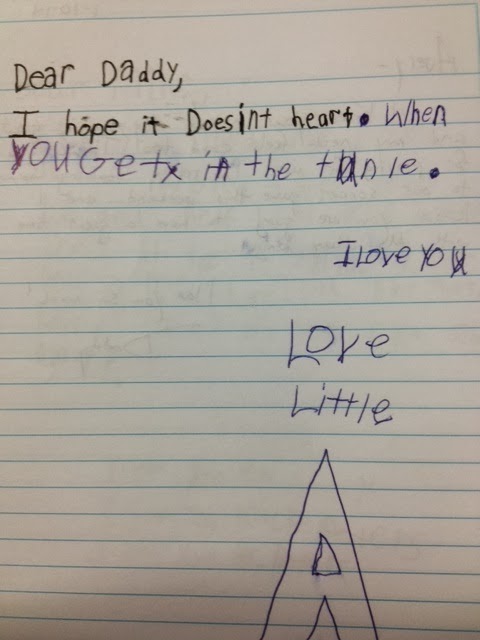 Dear Daddy,
I hope it Doesint heart. When
YOU Getx in the tunle.
I Love You
Love
Little
A